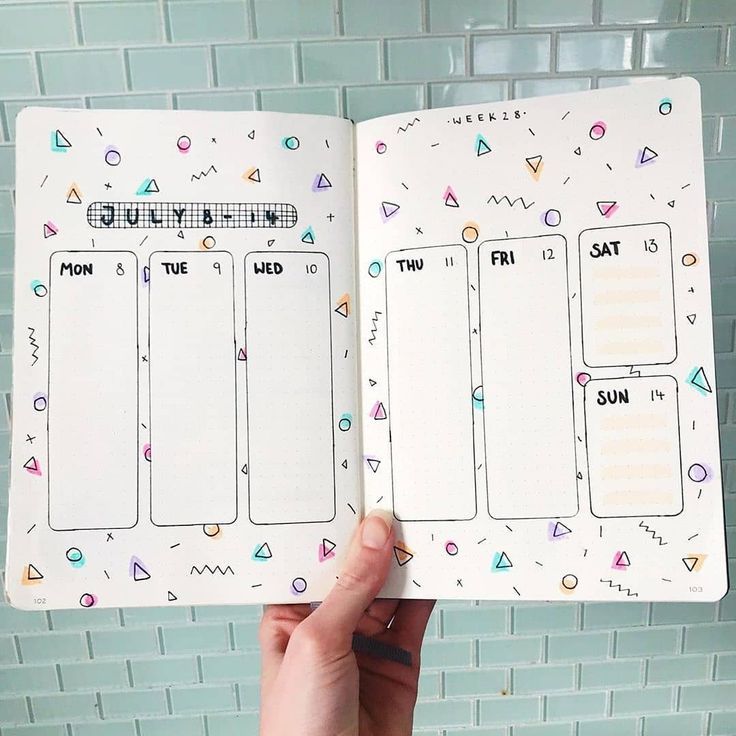 JULY 8-14
MON 8
TUE 9
WED 10
102
·WEEK 28·
THU 11
FRI 12
SAT 13
SUN 14
103